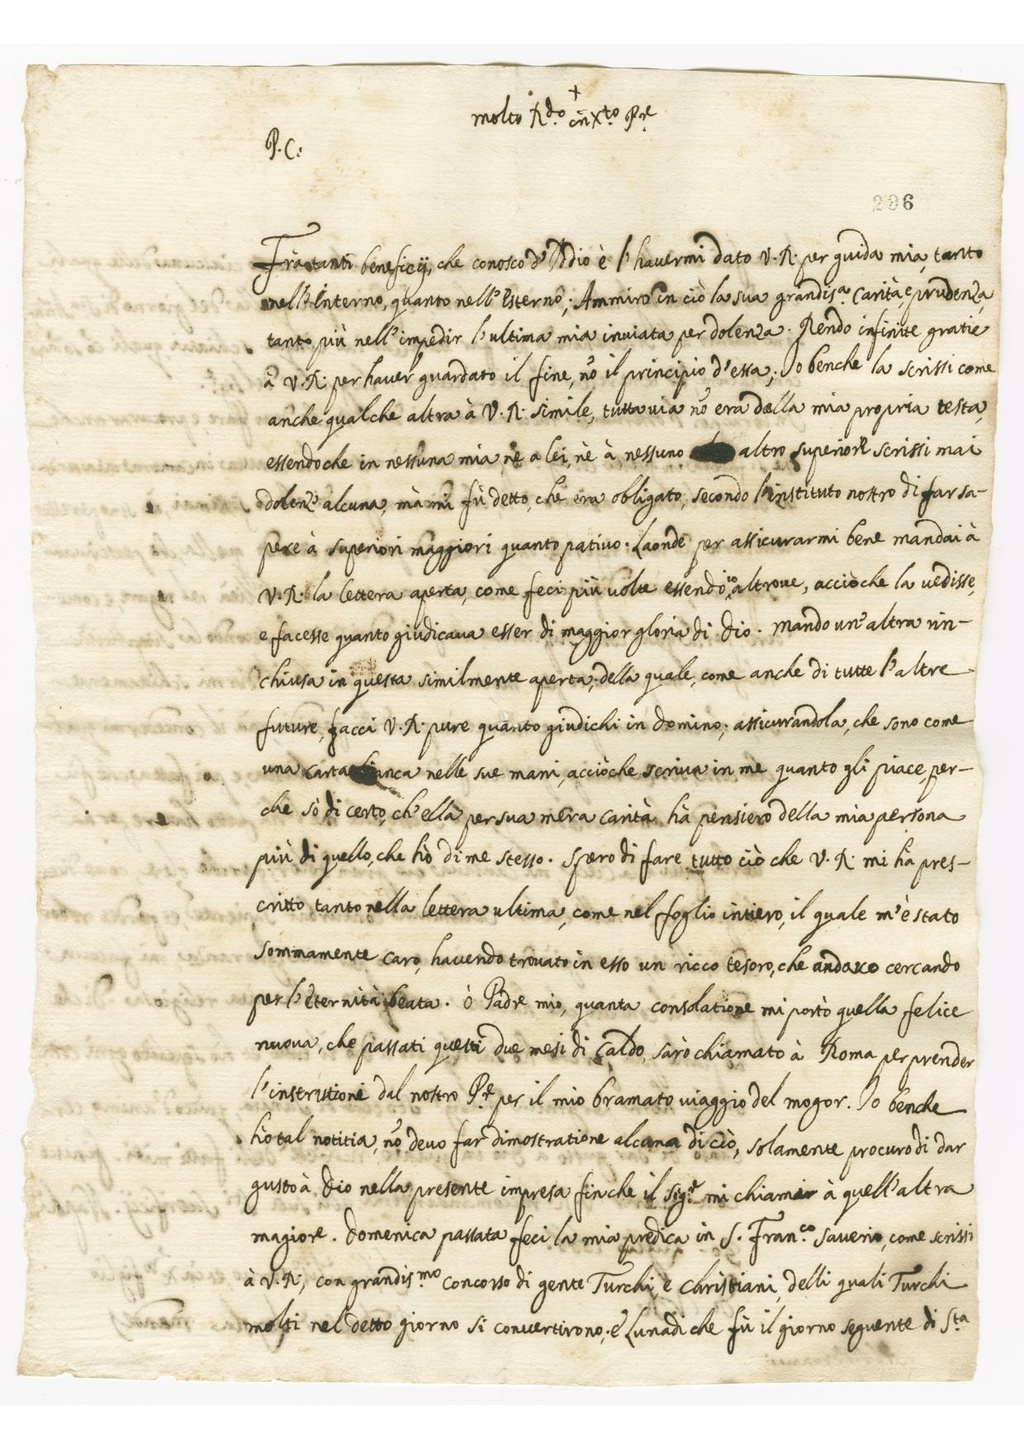 +
molto R.do in X.to P.re
P. C.
296
Fra tanti beneficij, che conosco d'Iddio è l'havermi dato V. R. per guida mia, tanto
nell'Interno, quanto nell'Esterno; Ammiro in ciò la sua grandis.a Carità, e prudenza,
tanto più nell'impedir l'ultima mia inviata per dolenza. Rendo infinite gratie
à V. R. per haver guardato il fine, nō il principio d'essa; Io benche la scrissi come
anche qualche altra à V. R. simile, tuttavia nō era dalla mia propria testa,
essendoche in nessuna mia nè a lei, nè à nessuno altro superiore scrissi mai
dolenz.a alcuna, mà mi fù detto, che era obligato, secondo l'instituto nostro di far sa-
pere à superiori maggiori quanto pativo. Laonde per assicurarmi bene mandai à
V. R. la lettera aperta, come feci più volte essendo io altrove, acciòche la vedisse,
e facesse quanto giudicava esser di maggior gloria di Dio. Mando un'altra rin-
chiusa in questa similmente aperta; della quale, come anche di tutte l'altre
future, facci V. R. pure quanto giudichi in Domino; assicurandola, che sono come
una carta bianca nelle sue mani, acciòche scriva in me quanto gli piace, per-
che sò di certo, ch'ella per sua mera carità hà pensiero della mia persona
più di quello, che hò di me stesso. Spero di fare tutto ciò che V. R. mi ha pres-
critto tanto nella lettera ultima, come nel foglio intiero, il quale m'è stato
sommamente caro, havendo trovato in esso un ricco tesoro, che andavo cercando
per l'Eternità beata. ò Padre mio, quanta consolatione mi portò quella felice
nuova, che passati questi due mesi di Caldo, sarò chiamato à Roma per prender
l'instruttione dal nostro P.re per il mio bramato viaggio del mogor. Io benche
hò tal notitia, nō devo far dimostratione alcuna di ciò, solamente procuro di dar
gusto à Dio nella presente impresa finche il Sig.re mi chiami à quell'altra
magiore. Domenica passata feci la mia predica in S. Fran.co Saverio, come scrissi
à V. R., con grandis.mo concorso di gente Turchi, e Christiani, delli quali Turchi
molti nel detto giorno si convertirono; e Lunadi che fù il giorno seguente di S.ta